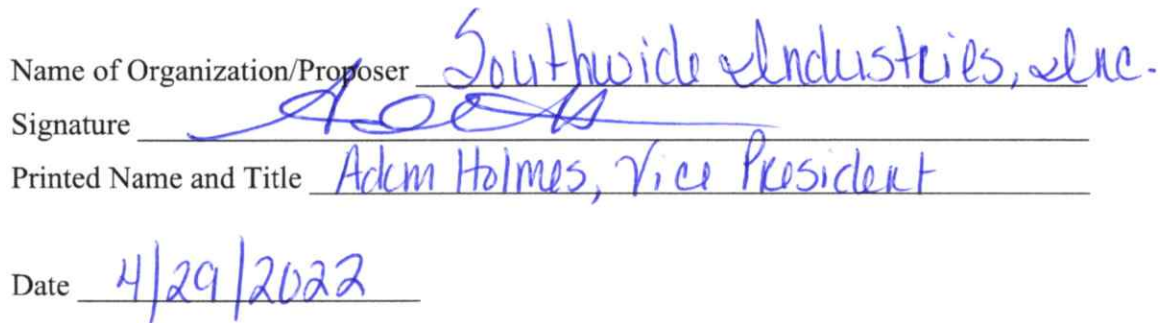 Name of Organization/Proposer Southwide Industries, Inc.
Signature
Printed Name and Title Adam Holmes, Vice President
Date 4/29/2022